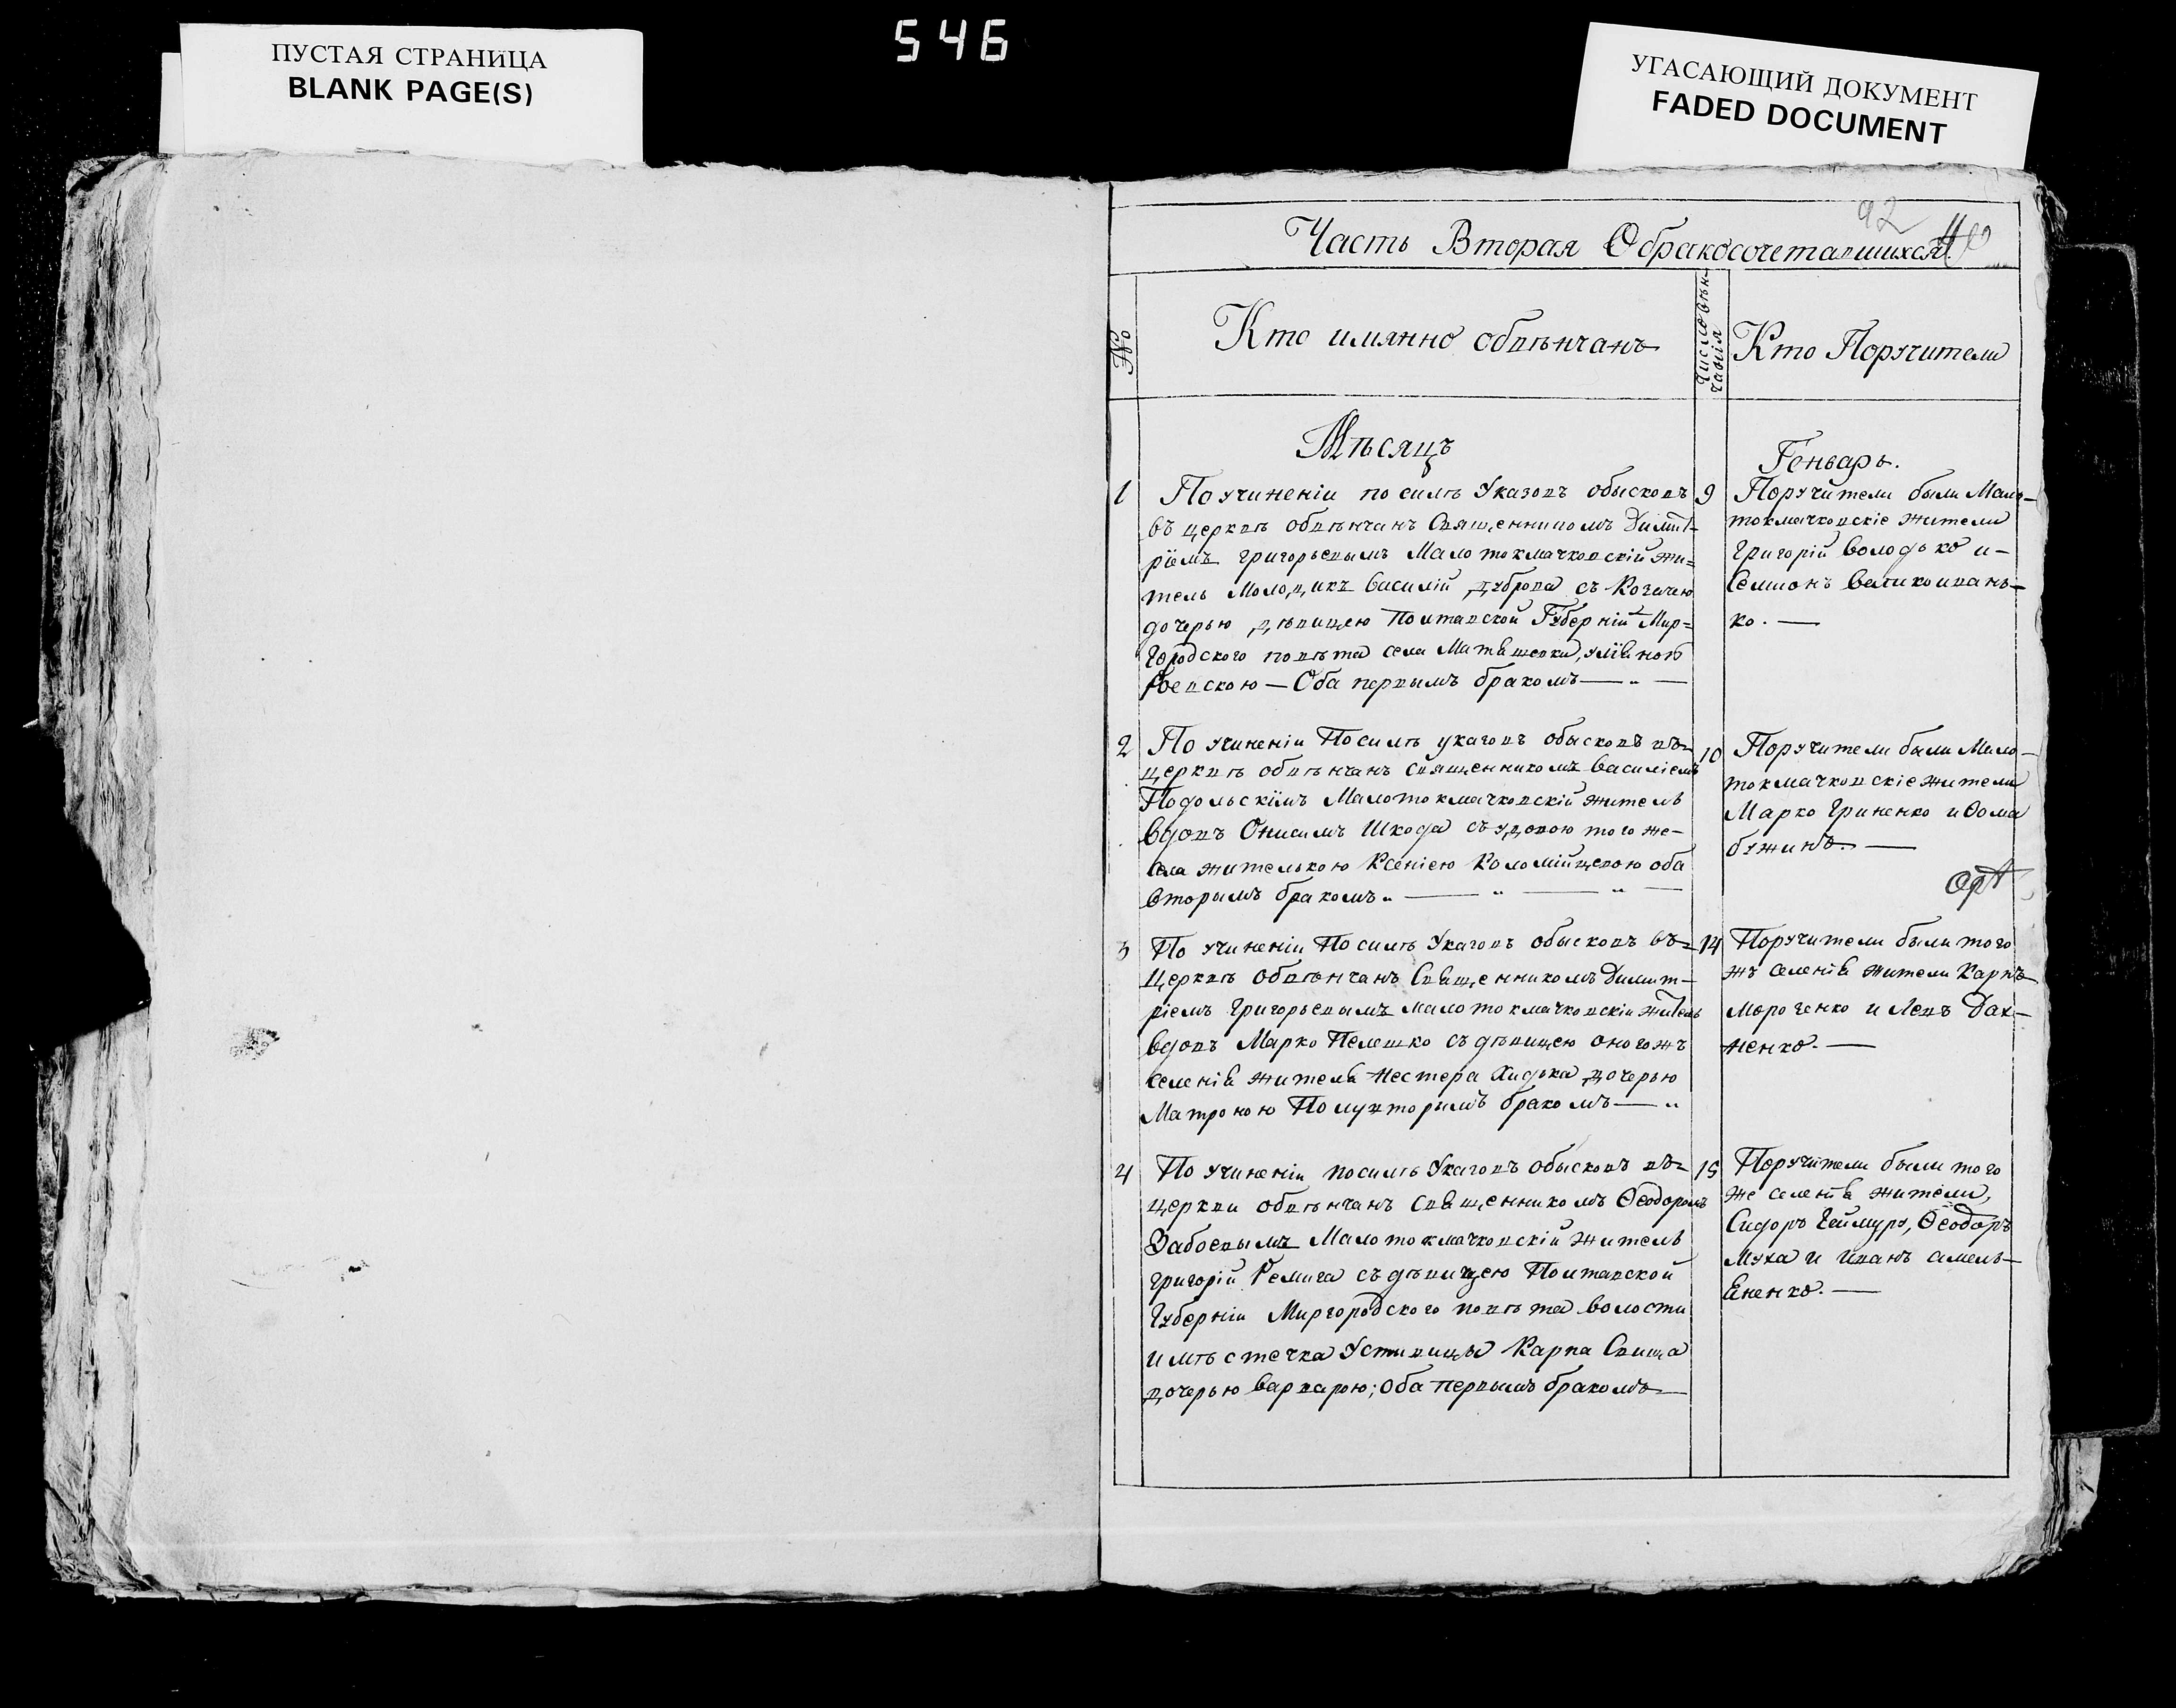 546
ПУСТАЯ СТРАНИЦА
BLANK PAGE(S)
УГАСАЮЩИЙ ДОКУМЕНТ
FADED DOCUMENT
92
Часть Вторая Обракосочетавшихся
№
Кто имянно обвѣнчанъ
Число вѣн-
чанія
Кто Поручители
Мѣсяцъ
Генварь.
1
По учиненіи по силѣ Указовъ обысковъ
въ церквѣ обвѣнчанъ Священникомъ Димит-
ріемъ Григорьевымъ Малотокмачковскій жи=
тель Молодикъ Василій Дуброва съ Козачею
дочерью дѣвицею Полтавской Губерніи Мир=
городского повѣта села
Оба первымъ бракомъ — „ —
9
Поручители были Мало-
токмачковскіе жители
Григорій Володько и-
Семіонъ Великоивань-
ко. —
2
По учиненіи По силѣ указовъ обысковъ въ-
церквѣ обвѣнчанъ священникомъ Василіемъ
Подольскимъ Малотокмачковскій житель
Вдовъ Онисимъ Шкода съ удовою того же-
села жителькою Ксеніею Коломійцевою оба
Вторымъ бракомъ „ — „ — „ —
10
Поручители были Мало-
токмачковскіе жители
Марко Гриненко и Ѳома
бужинъ. —
3
По учиненіи По силѣ Указовъ обысковъ въ=
Церквѣ обвѣнчанъ Священникомъ Димит-
ріемъ Григорьевымъ малотокмачковскіи житель
Вдовъ Марко Пелешко съ дѣвицею оногожъ
селенія жителя Нестера Хидька дочерью
Матроною Полувторымъ бракомъ — „
14
Поручители были того
жъ селенія жители Карпъ
Морозенко и Левъ Дах-
ненко. —
4
По учиненіи по силѣ Указовъ обысковъ въ-
церкви обвѣнчанъ священникомъ Ѳеодоромъ
Забоевымъ Малотокмачковскіи житель
Григорій Ремига съ дѣвицею Полтавской
Губерніи Миргородского повѣта волости
и мѣстечка Устивицы Карпа Свища
дочерью Варварою; Оба первымъ бракомъ —
15
Поручители были того
же селенія жители,
Сидоръ Чеймуръ, Ѳеодоръ
Муха и Иванъ амель-
яненко. —